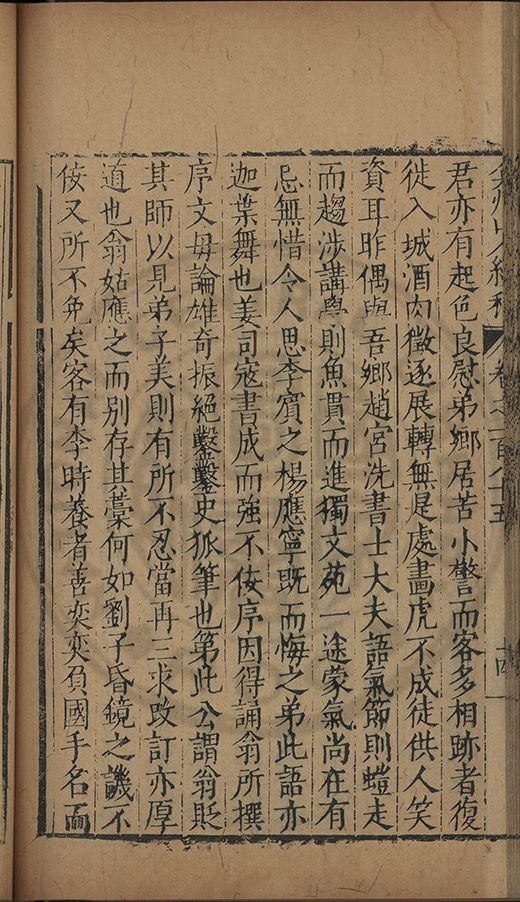 弇州山人續稿 卷之一百八十五 十四
君亦有起色良慰弟鄉居苦小警而客多相跡者復
徙入城酒肉徵逐展轉無是處畫虎不成徒供人笑
資耳昨偶與吾鄉趙宮洗書士大夫語氣節則螘走
而趨涉講學則魚貫而進獨文苑一途蒙氣尚在有
忌無惜令人思李賓之楊應寧既而悔之弟此語亦
迦葉舞也姜司寇書成而強不佞序因得誦翁所撰
序文毋論雄奇振絕鑿鑿史狐筆也第此公謂翁貶
其師以見弟子美則有所不忍當再三求改訂亦厚
道也翁姑應之而別存其藁何如劉子昏鏡之譏不
佞又所不免矣客有李時養者善奕奕負國手名而